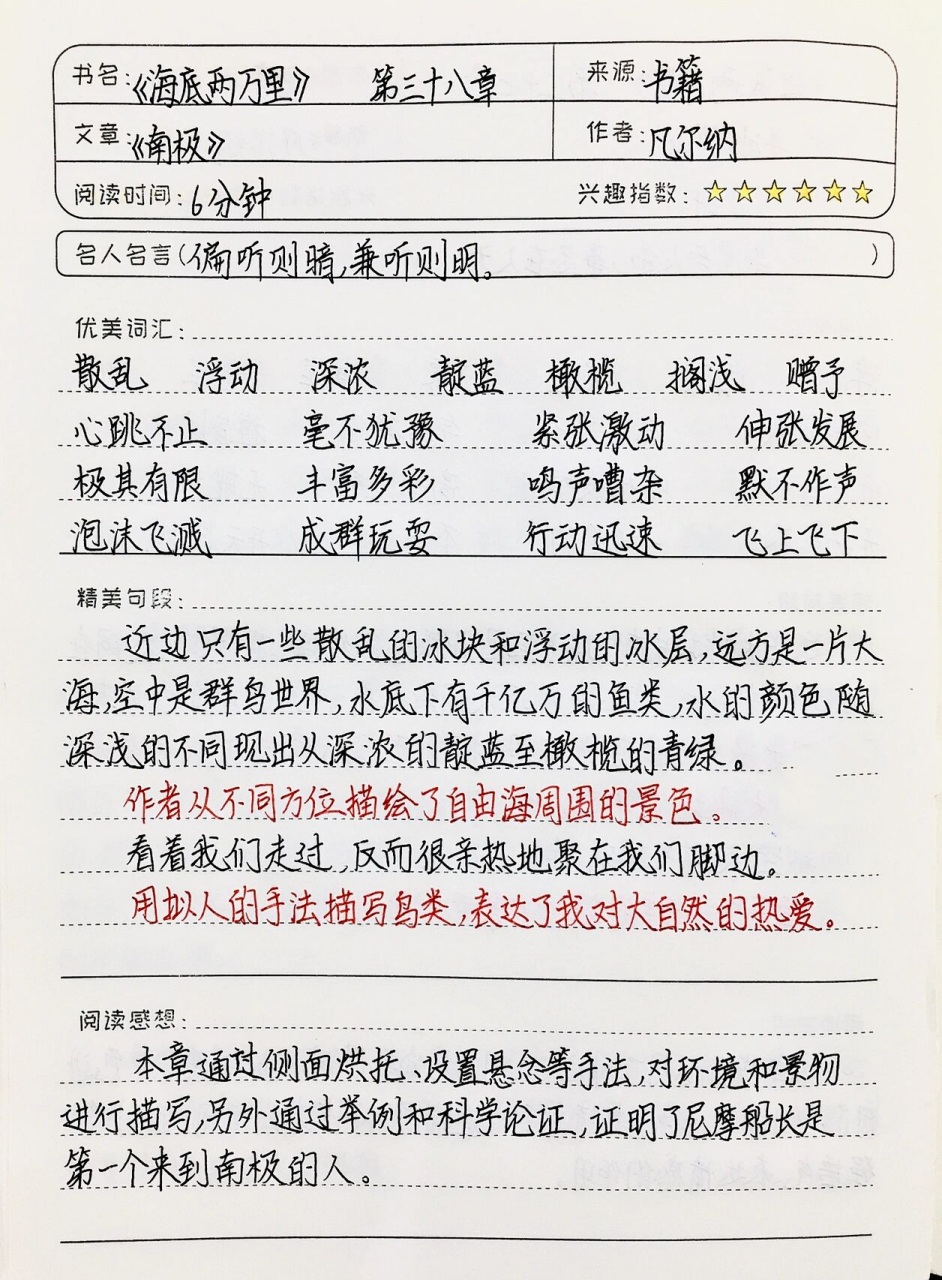 书名:《海底两万里》 第三十八章 来源:书籍
文章:《南极》 作者:凡尔纳
阅读时间:6分钟 兴趣指数:☆☆☆☆☆☆
名人名言(偏听则暗,兼听则明。)
优美词汇:
散乱 浮动 深浓 靛蓝 橄榄 搁浅 赠予
心跳不止 毫不犹豫 紧张激动 伸张发展
极其有限 丰富多彩 鸣声嘈杂 默不作声
泡沫飞溅 成群玩耍 行动迅速 飞上飞下
精美句段:
近边只有一些散乱的冰块和浮动的冰层,远方是一片大
海,空中是群鸟世界,水底下有千亿万的鱼类,水的颜色随
深浅的不同现出从深浓的靛蓝至橄榄的青绿。
作者从不同方位描绘了自由海周围的景色。
看着我们走过,反而很亲热地聚在我们脚边。
用拟人的手法描写鸟类,表达了我对大自然的热爱。
阅读感想:
本章通过侧面烘托、设置悬念等手法,对环境和景物
进行描写,另外通过举例和科学论证,证明了尼摩船长是
第一个来到南极的人。